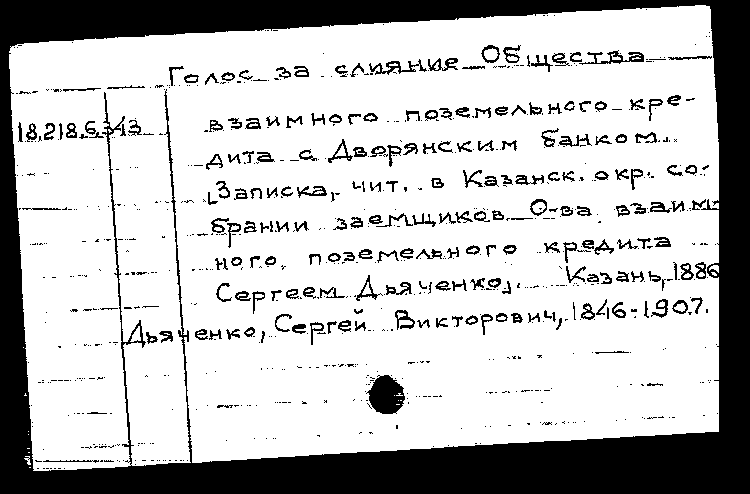 Голос за слияние Общества
18.218.6.343
взаимного поземельного кре-
дита с Дворянским банком.
[Записка, чит. в Казанск. окр. со-
брании заемщиков О-ва взаим-
ного поземельного кредита
Сергеем Дьяченко]. Казань, 1886
Дьяченко, Сергей Викторович, 1846-1907.